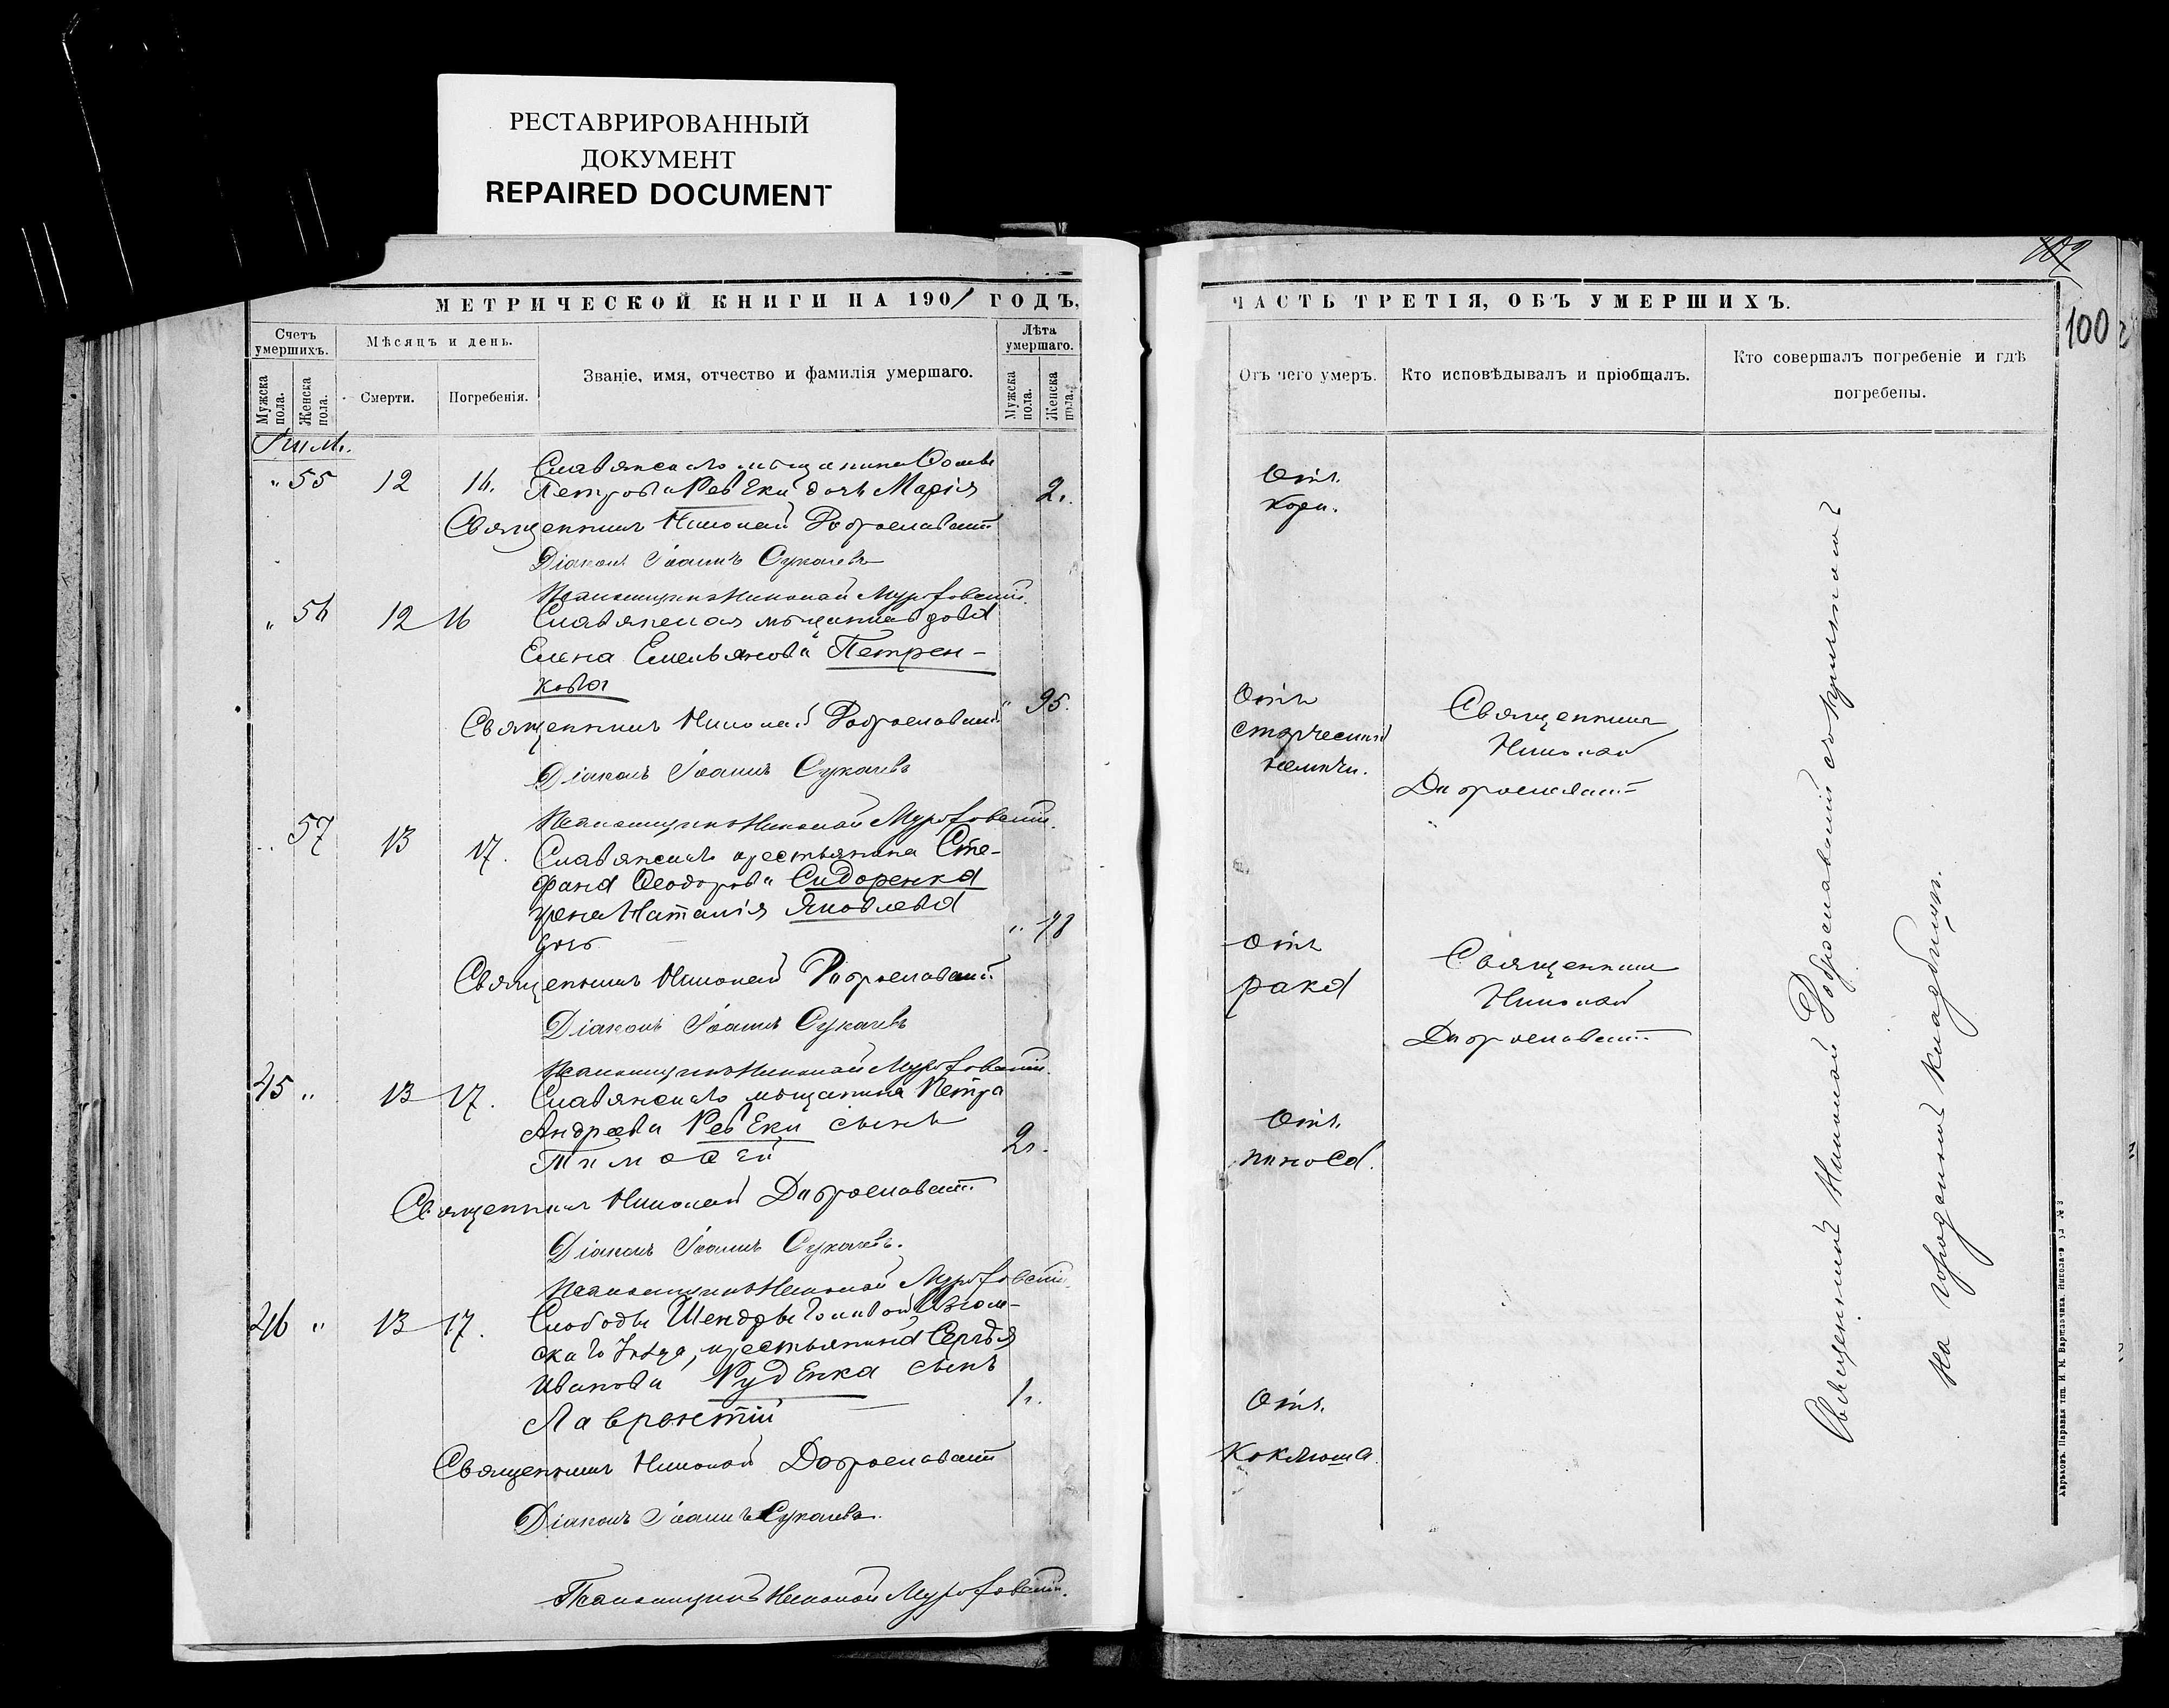 РЕСТАВРИРОВАННЫЙ
ДОКУМЕНТ
REPAIRED DOCUMENT
МЕТРИЧЕСКОЙ КНИГИ НА 1901 ГОДЪ,
Счетъ умершихъ.
Мужска пола.
Женска пола.
Мѣсяцъ и день.
Смерти.
Погребенія.
Званіе, имя, отчество и фамилія умершаго.
Лѣта умершаго.
Мужска пола.
Женска пола.
55 12 14. Славянскаго мѣщанина Ѳомы
Петрова Ревеки дочь Марія 2.
Священникъ Николай Доброславскій
Діаконъ Іоаннъ Сукачевъ
Псаломщикъ Николай
56 12 16 Славянская мѣщанка вдова
Елена Емельянова Петрен-
кова 95.
Священникъ Николай Доброславскій
Діаконъ Іоаннъ Сукачевъ
Псаломщикъ Николай
57 13 17. Славянскаго крестьянина Сте-
фана Ѳеодорова Сидоренка
жена Наталія Яковлева
Священникъ Николай Доброславскій
Діаконъ Іоаннъ Сукачевъ
Псаломщикъ Николай
45 " 13 17. Славянскаго мѣщанина Петра
Андреева Ревеки сынъ
Тимоѳей 2.
Священникъ Николай Доброславскій
Діаконъ Іоаннъ Сукачевъ.
Псаломщикъ Николай
46 " 13 17. Слободы
скаго уѣзда, крестьянина Сергѣя
Иванова Руденка сынъ
Лаврентій 1.
Священникъ Николай Доброславскій
Діаконъ Іоаннъ Сукачевъ.
Псаломщикъ Николай
ЧАСТЬ ТРЕТІЯ, ОБЪ УМЕРШИХЪ.
100
Отъ чего умеръ.
Кто исповѣдывалъ и пріобщалъ.
Кто совершалъ погребеніе и гдѣ
погребены.
Отъ
кори.
Отъ
старческой
Священникъ
Николай
Доброславскій
Отъ
рака
Священникъ
Николай
Доброславскій
Отъ
поноса.
Отъ
коклюша.
Священникъ Николай Доброславскій
на городскомъ кладбищѣ.